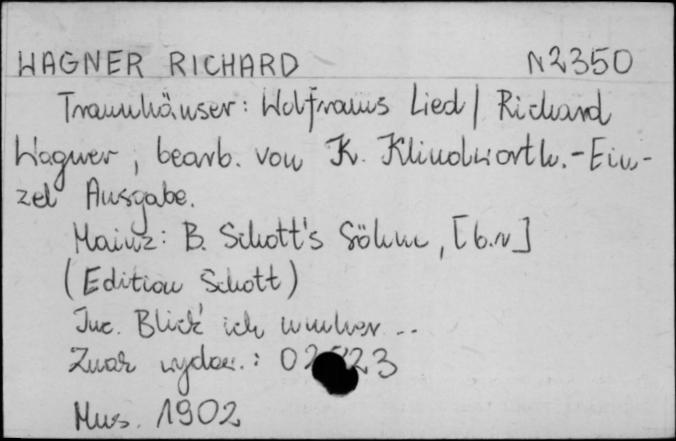 WAGNER RICHARD N2350
Trannhäuser: Wolframs Lied / Richard
Wagner, bearb. von K. Klindworth. - Ein-
zel Ausgabe.
Mainz: B. Schott's Söhne, [b.r]
(Edition Schott)
Inc. Blick' ich umher ..
Znak wydaw.: 02 23
Mus. 1902